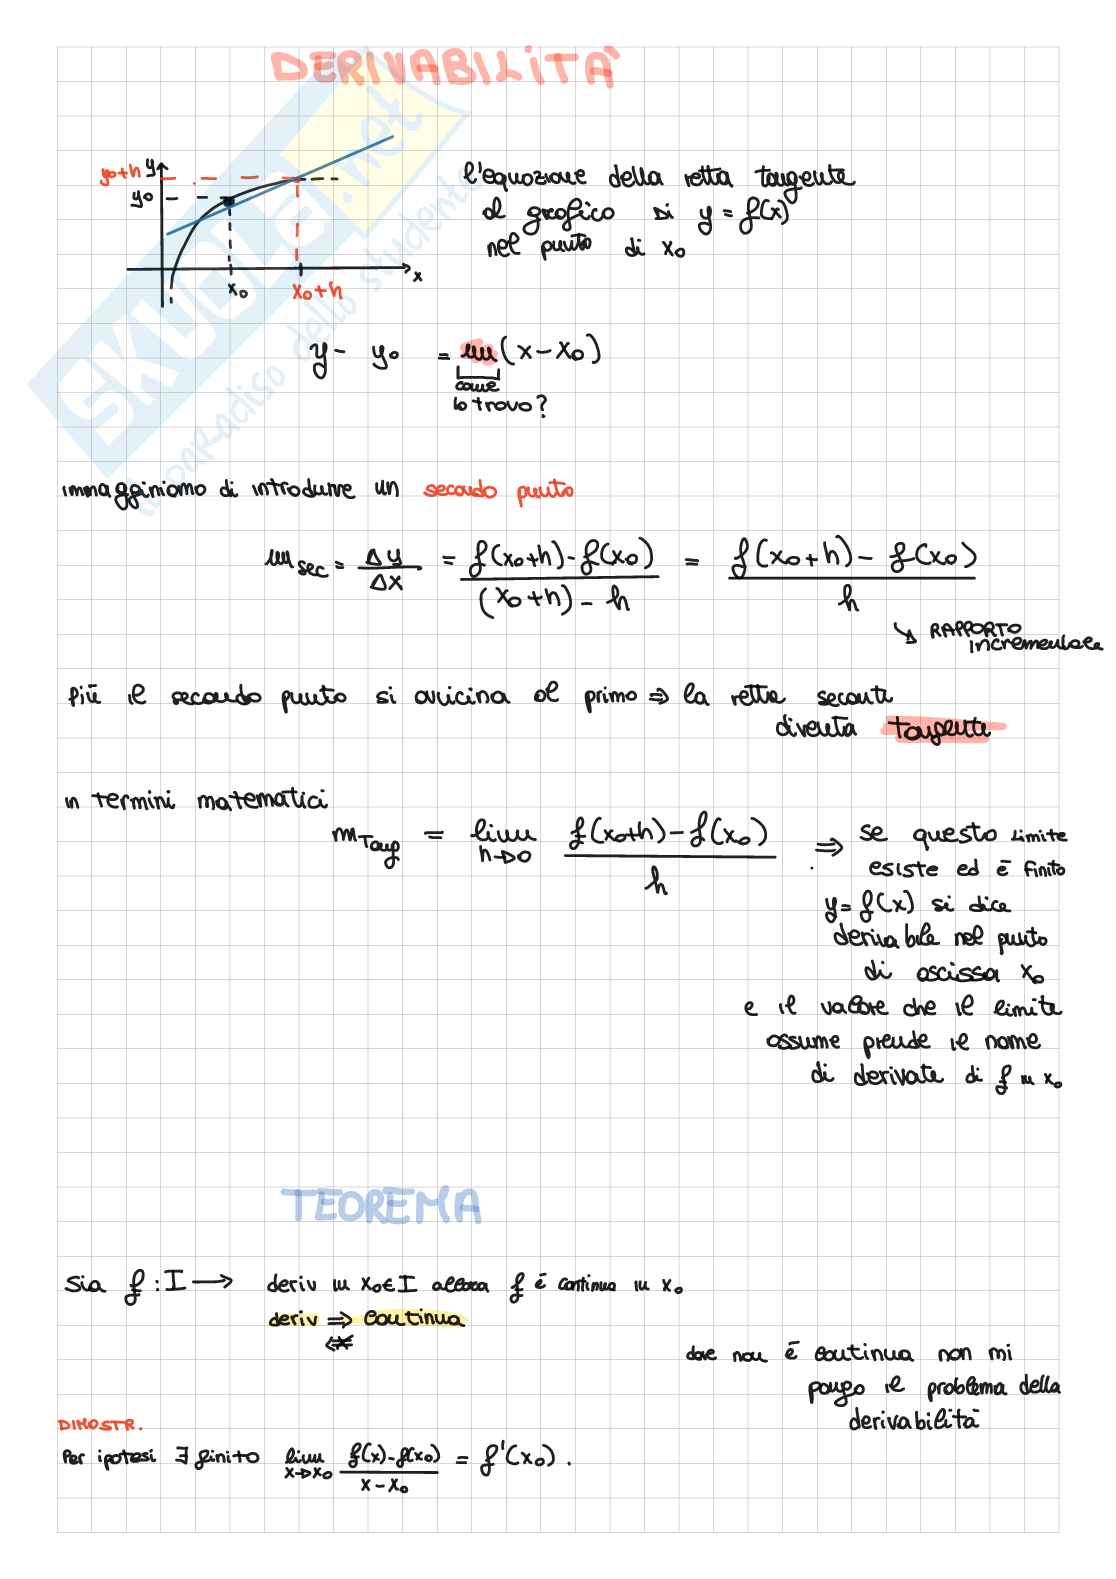 DERIVABILITÀ
y₀+h y
y₀
x₀ x₀+h x
l'equazione della retta tangente
al grafico di y = f(x)
nel punto di x₀
y - y₀ = m (x - x₀)
come
lo trovo?
immagginiamo di introdurre un secondo punto
m sec = Δy/Δx = f(x₀+h) - f(x₀) / (x₀+h) - h = f(x₀+h) - f(x₀) / h
↘ RAPPORTO
incrementale
più il secondo punto si avvicina al primo ⇒ la retta secante
diventa tangente
in termini matematici
m Tang = lim h→0 f(x₀+h) - f(x₀) / h ⇒ se questo limite
esiste ed è finito
y = f(x) si dice
derivabile nel punto
di ascissa x₀
e il valore che il limite
assume prende il nome
di derivata di f in x₀
TEOREMA
Sia f : I → deriv in x₀ ∈ I allora f è continua in x₀
deriv ⇒ continua
⇍
dove non è continua non mi
pongo il problema della
derivabilità
DIMOSTR.
Per ipotesi ∃ finito lim x→x₀ f(x) - f(x₀) / x - x₀ = f'(x₀).
SKUOLA.net
il paradiso dello studente